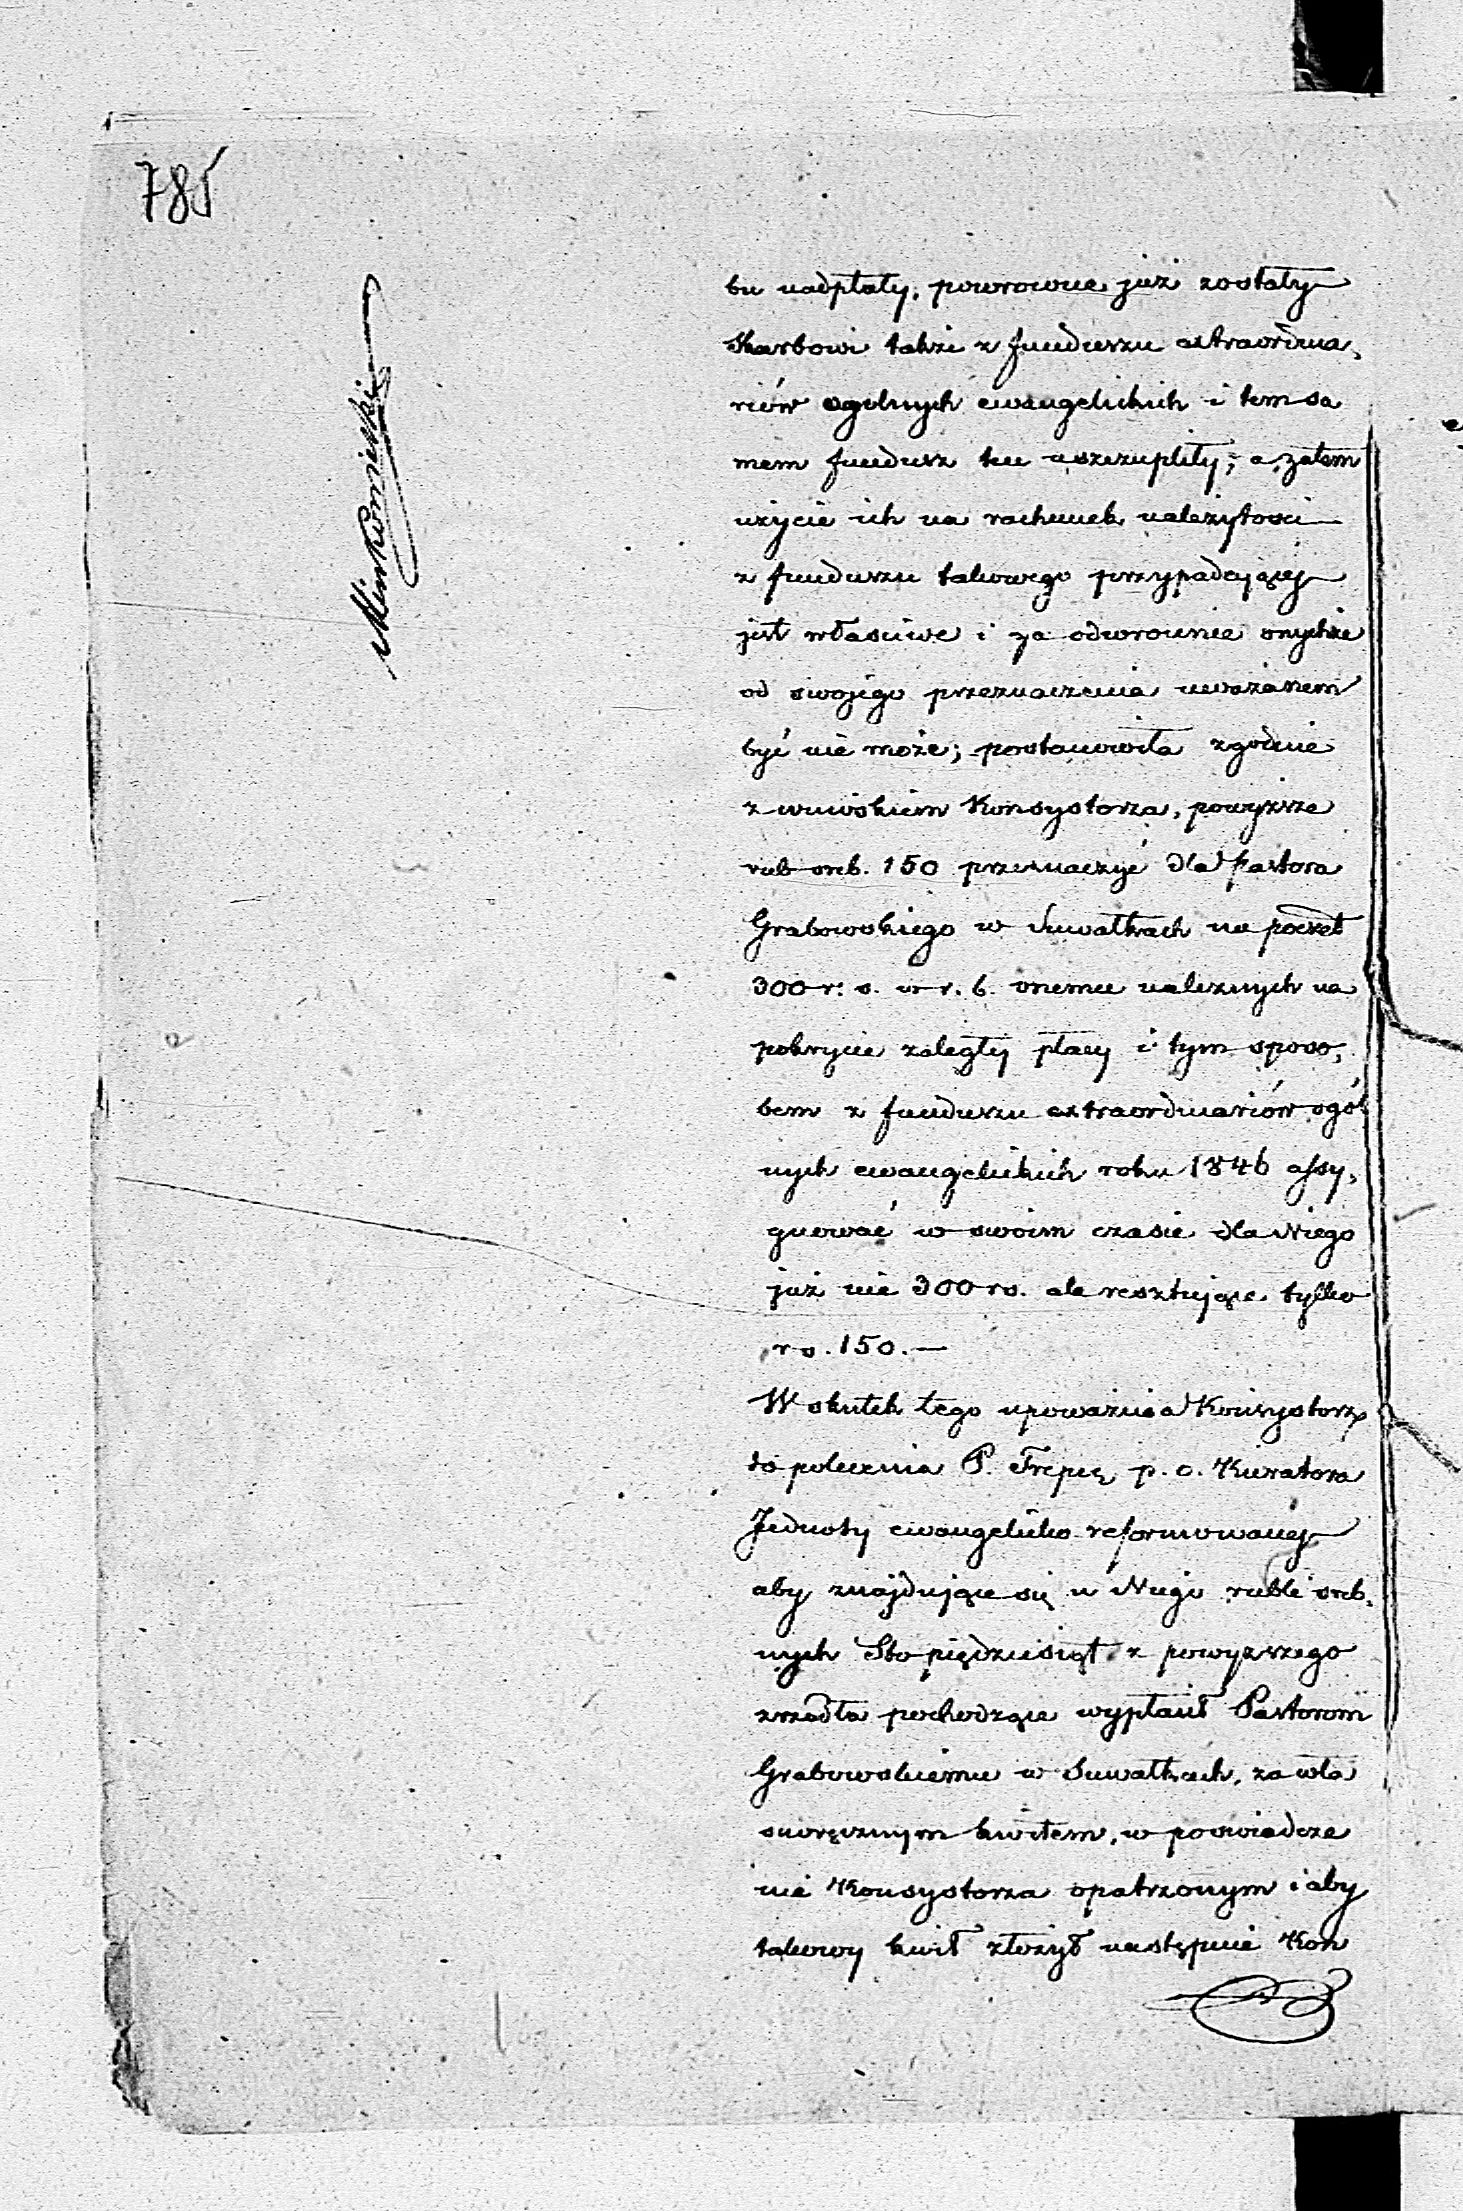 785
Minkowiecki
bu nadpłaty, powrocone już zostały
Skarbowi także z funduszu extraordina,
riów ogolnych ewangelickich i tem sa
mem fundusz ten uszczupliły; a zatem
użycie ich na rachunek należytosci
z funduszu takowego przypadającej
jest właściwe i za odwrocenie onychże
od swojego przeznaczenia uważanem
być nie może; postanowiła zgodnie
z wnioskiem Konsystorza, powyższe
rub sreb. 150 przeznaczyć dla Pastora
Grabowskiego w Suwałkach na poczet
300 r. s. w r. b. onemu należnych na
pokrycie zaległej płacy i tym sposo,
bem z funduszu extraordinariów ogól
nych ewangelickich roku 1846 assy,
gnować w swoim czasie dla Niego
już nie 300 rs. ale resztujące tylko
rs. 150. —
W skutek tego upoważnia Konsystorz
do polecenia P. Trepię p. o. Kuratora
Jednoty ewangelicko reformowanej
aby znajdujące się u Niego ruble sreb,
nych Sto pięćdziesiąt z powyższego
zrzódła pochodzące wypłacił Pastorom
Grabowskiemu w Suwałkach, za wła
snoręcznym kwitem, w poswiadcze
nie Konsystorza opatrzonym i aby
takowy kwit złożył następnie Kon